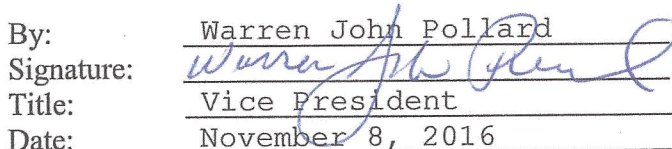 By: Warren John Pollard
Signature: Warren John Pollard
Title: Vice President
Date: November 8, 2016